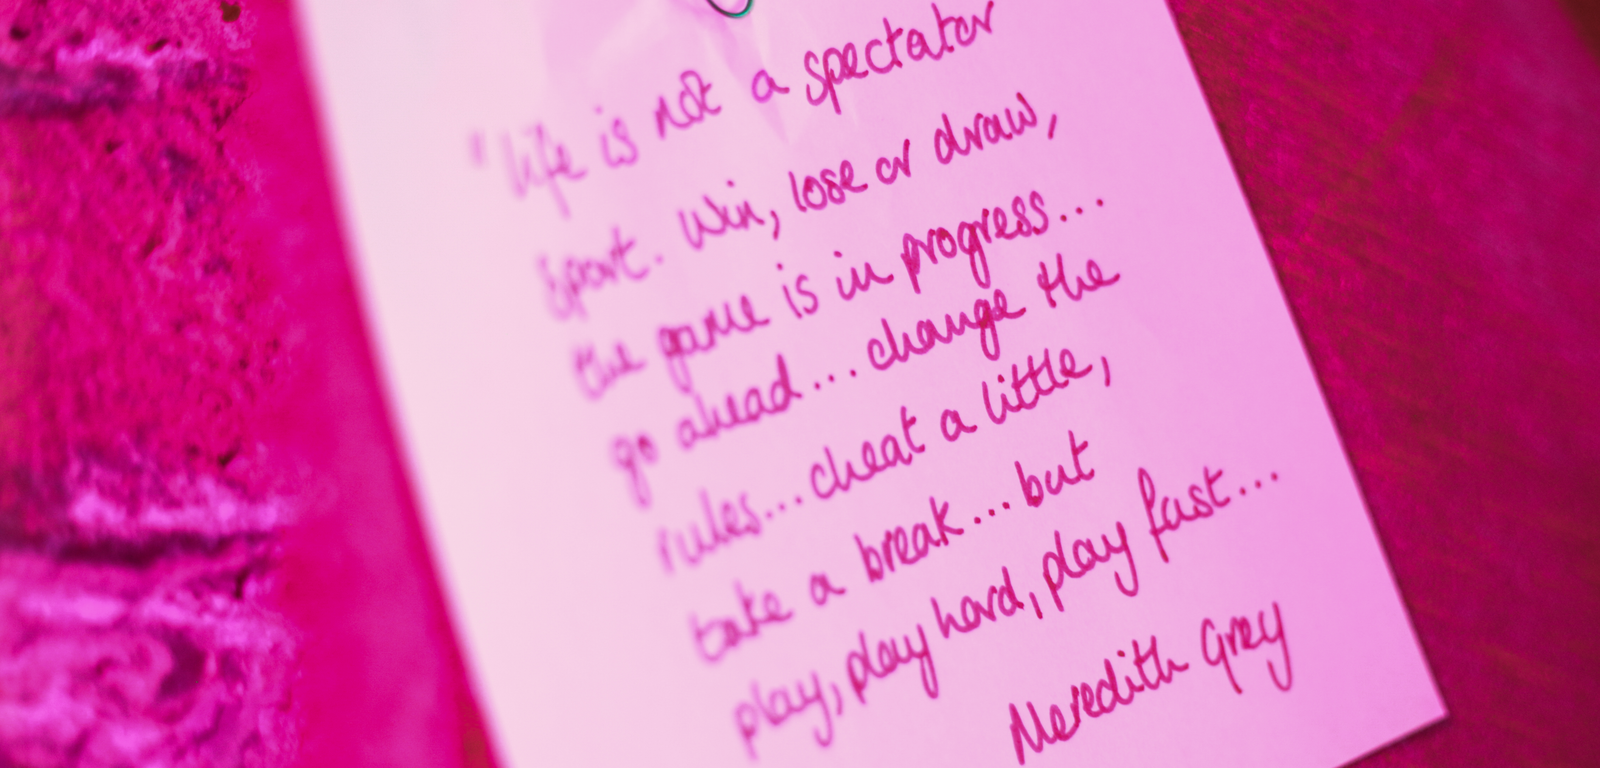 "life is not a spectator
sport. Win, lose or draw,
the game is in progress...
go ahead...change the
rules...cheat a little,
take a break...but
play, play hard, play fast...
Meredith Grey